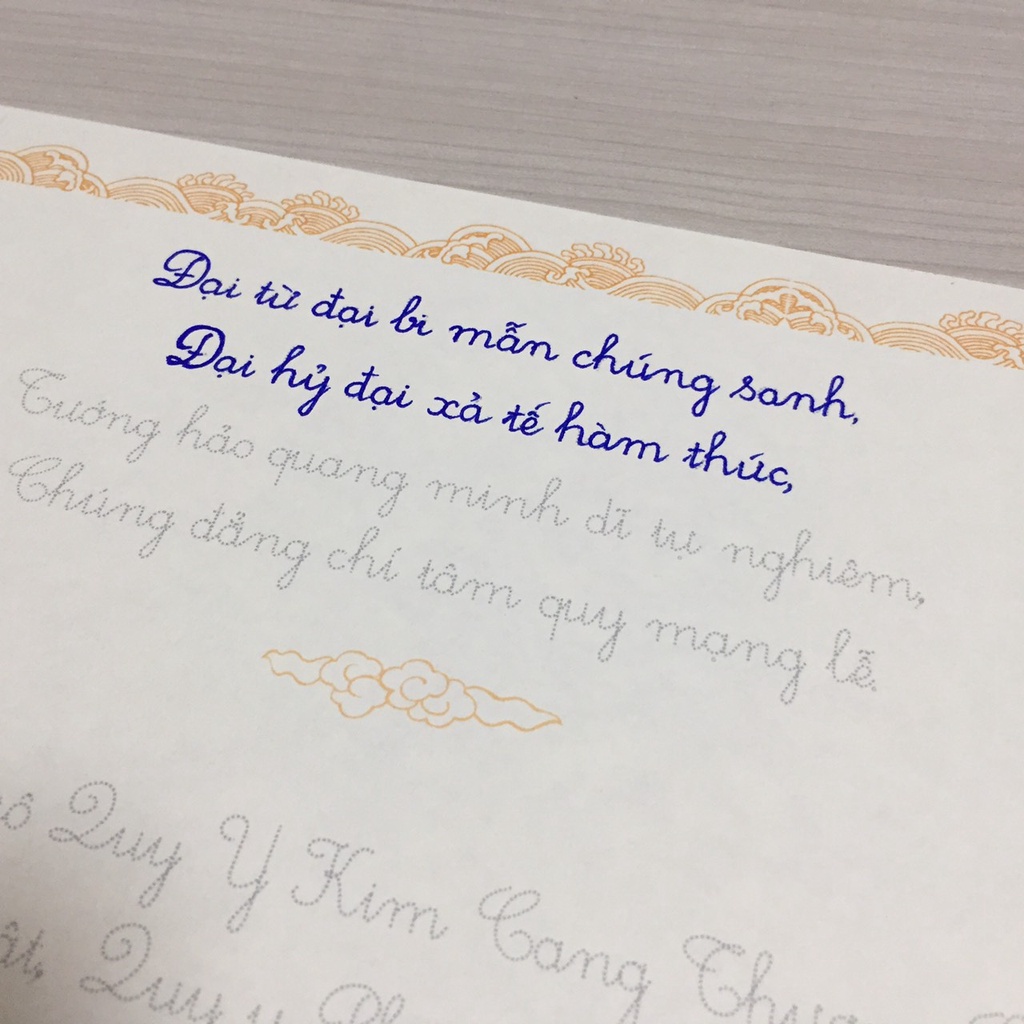 Đại từ đại bi mẫn chúng sanh,
Đại hỷ đại xả tế hàm thức,
Tướng hảo quang minh dĩ tự nghiêm,
Chúng đẳng chí tâm quy mạng lễ.
Quy Y Kim Cang Thượng
Quy y